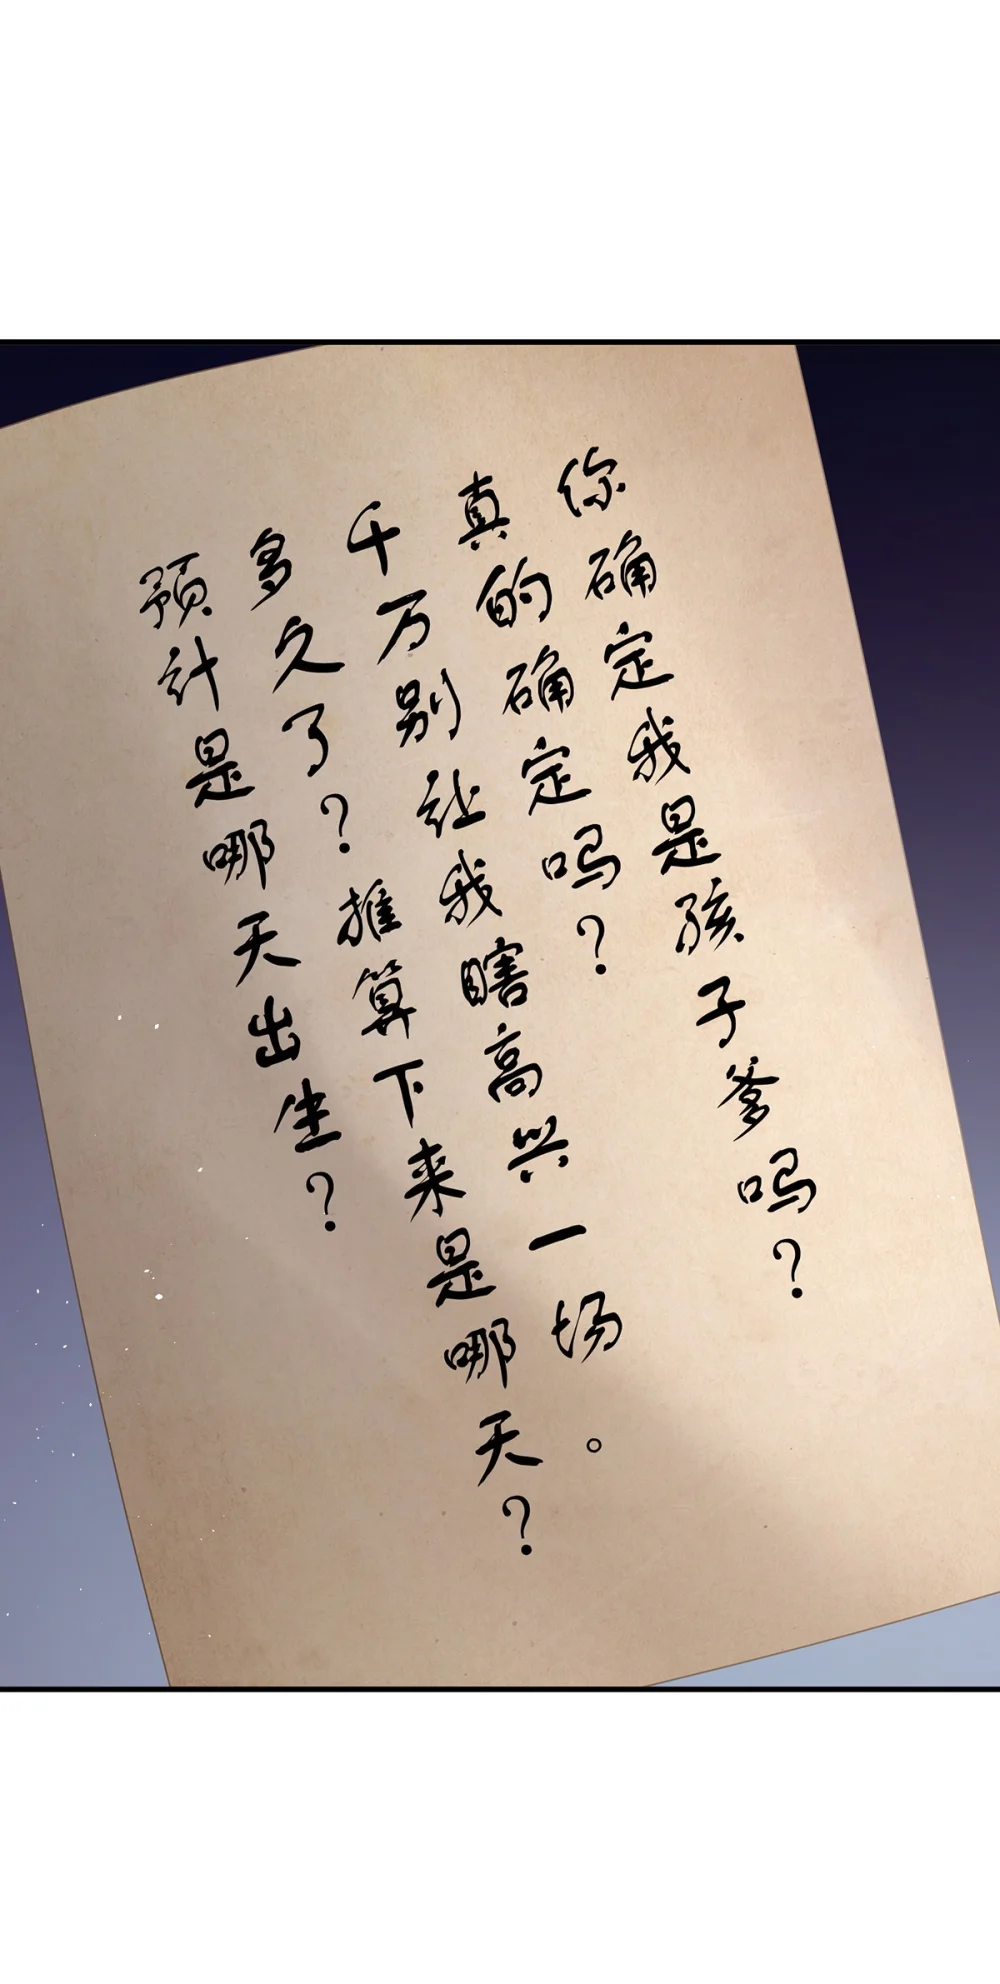 你确定我是孩子爹吗？
真的确定吗？
千万别让我瞎高兴一场。
多久了？推算下来是哪天？
预计是哪天出生？